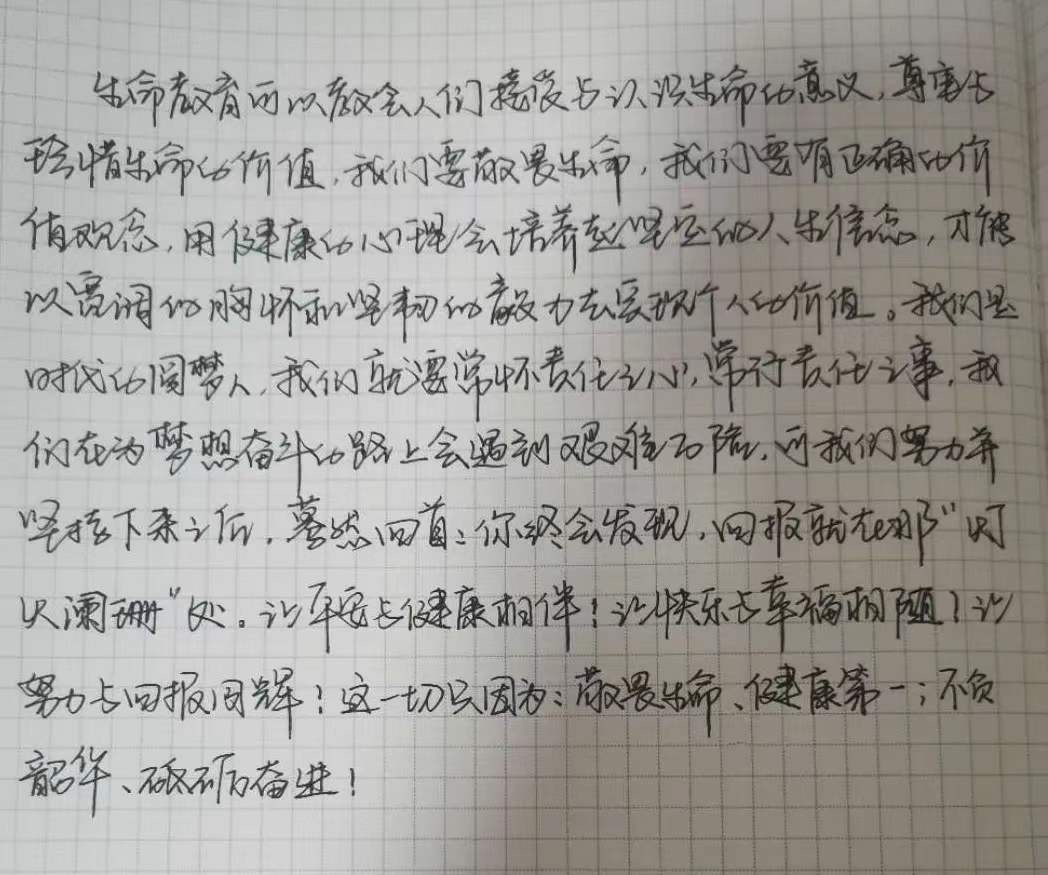 生命教育可以教会人们接受与认识生命的意义，尊重与
珍惜生命的价值，我们要敬畏生命，我们要有正确的价
值观念，用健康的心理会培养起坚定的人生信念，才能
以宽阔的胸怀和坚韧的毅力去实现个人的价值。我们是
时代的圆梦人，我们就要常怀责任之心，常行责任之事，我
们在为梦想奋斗的路上会遇到艰难石阻，可我们努力并
坚持下来之后，蓦然回首：你终会发现，回报就在那“灯
火澜珊”处。让平安与健康相伴！让快乐与幸福相随！让
努力与回报同辉！这一切只因为：敬畏生命、健康第一；不负
韶华、砥砺奋进！